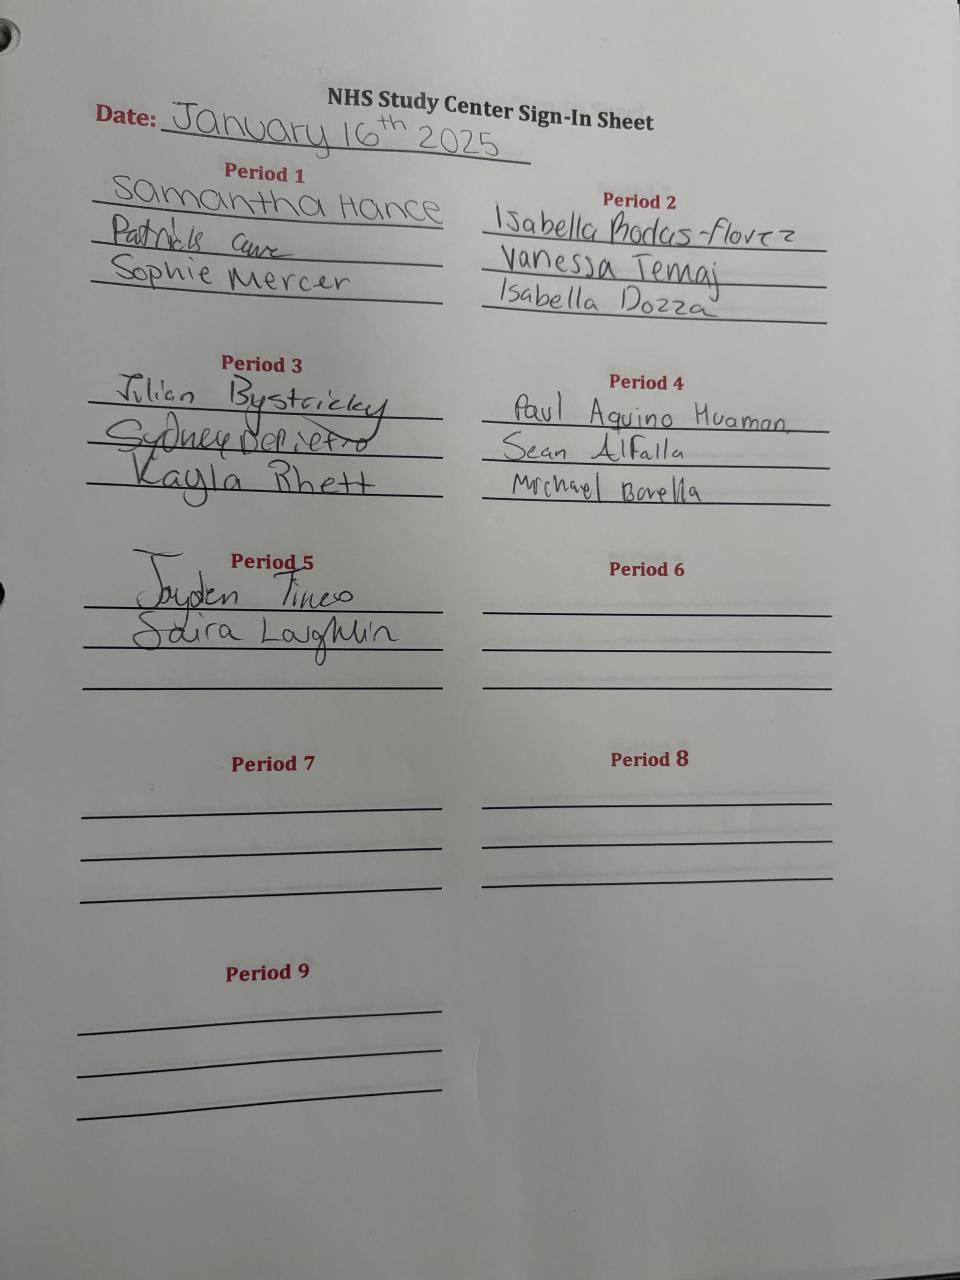 NHS Study Center Sign-In Sheet
Date: January 16th 2025
Period 1
Samantha Hance
Patrick
Sophie Mercer
Period 2
Isabella Rodas-florez
Vanessa Temaj
Isabella Dozza
Period 3
Julian Bystricky
Sydney DePietro
Kayla Rhett
Period 4
Paul Aquino Huaman
Sean Alfalla
Michael Borella
Period 5
Jayden Tineo
Saira Laughlin
Period 6
Period 7
Period 8
Period 9